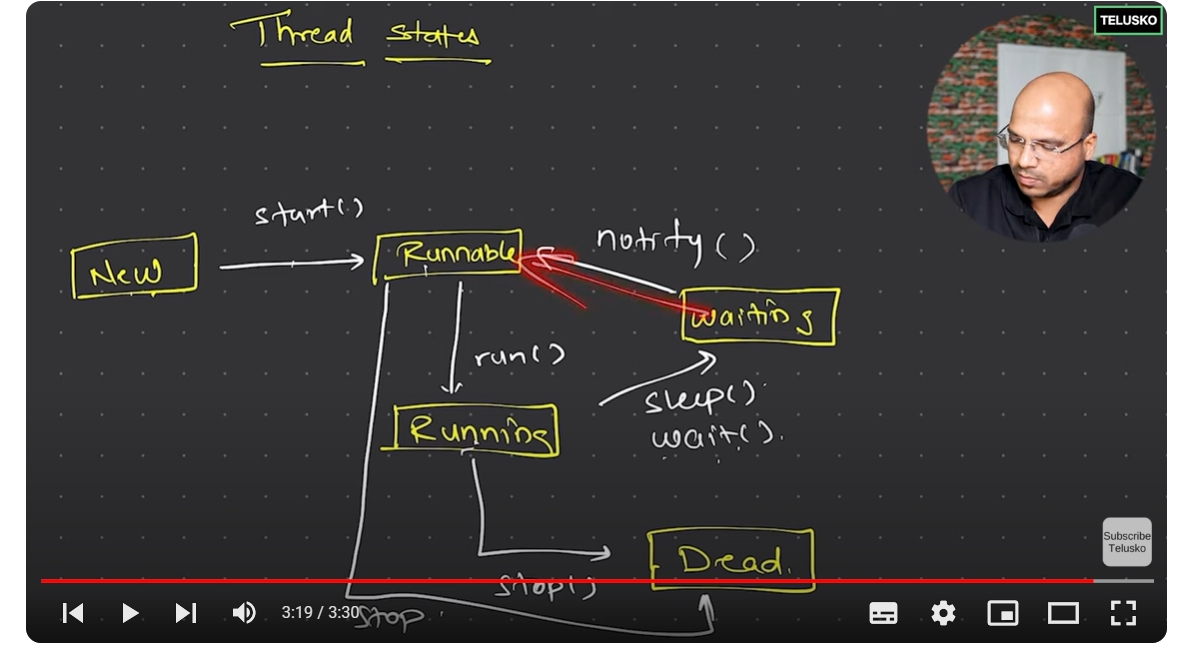 Thread States
TELUSKO
start()
notify()
New
Runnable
waiting
run()
sleep().
wait().
Running
Dead.
stop()
stop
Subscribe
Telusko
3:19 / 3:30